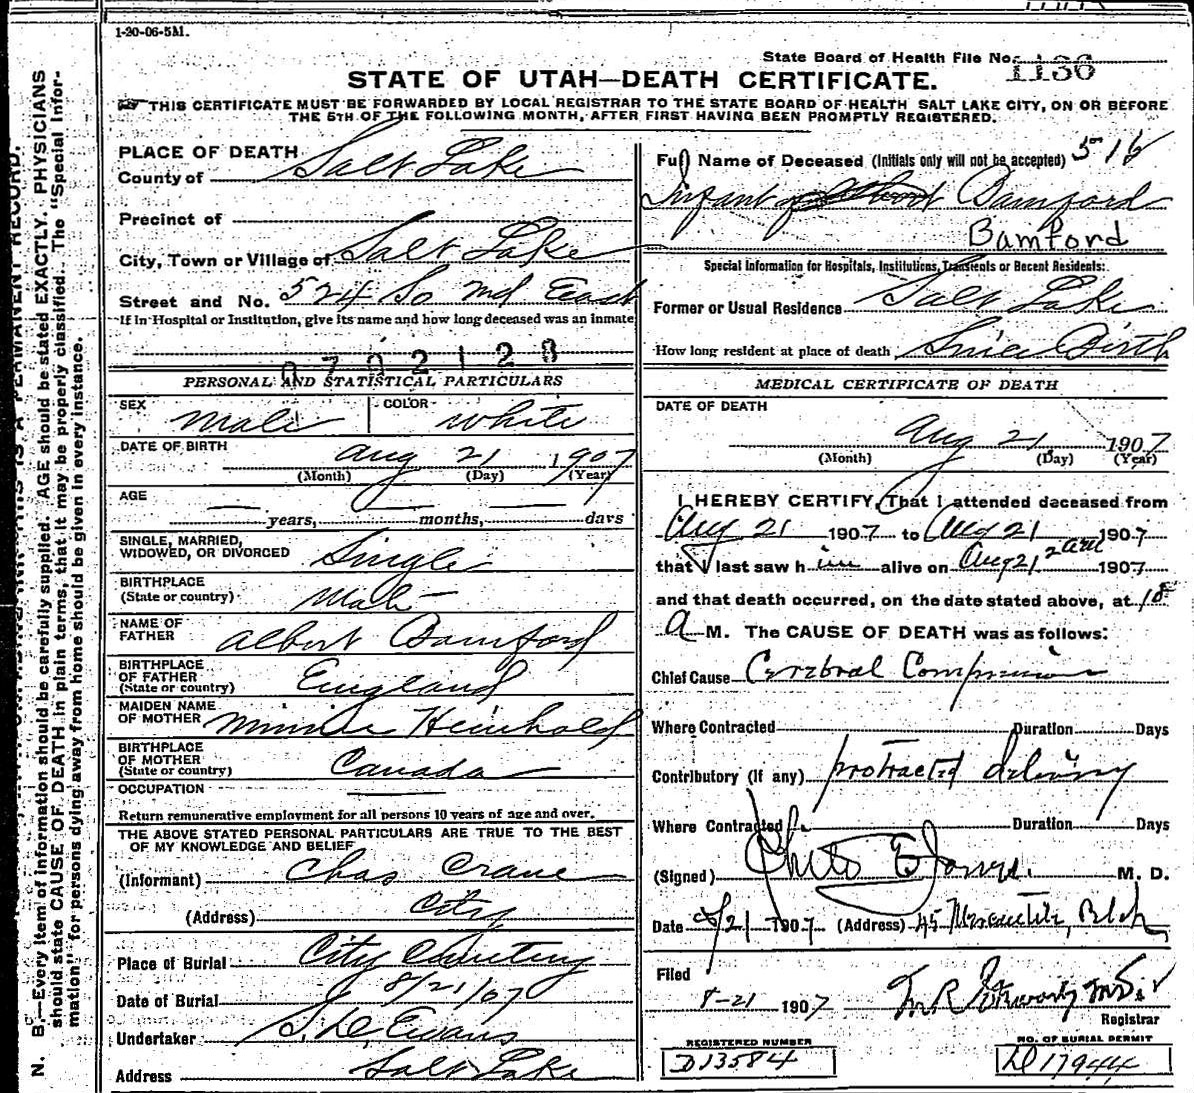 1-20-06-5M.
State Board of Health File No. 1136
STATE OF UTAH—DEATH CERTIFICATE.
THIS CERTIFICATE MUST BE FORWARDED BY LOCAL REGISTRAR TO THE STATE BOARD OF HEALTH SALT LAKE CITY, ON OR BEFORE
THE 5TH OF THE FOLLOWING MONTH, AFTER FIRST HAVING BEEN PROMPTLY REGISTERED.
PLACE OF DEATH
County of Salt Lake
Precinct of
City, Town or Village of Salt Lake
Street and No. 524 So 2nd East
If in Hospital or Institution, give its name and how long deceased was an inmate
0702128
PERSONAL AND STATISTICAL PARTICULARS
SEX Male COLOR White
DATE OF BIRTH Aug 21 1907
(Month) (Day) (Year)
AGE — — —
years, months, days
SINGLE, MARRIED,
WIDOWED, OR DIVORCED Single
BIRTHPLACE
(State or country)
NAME OF
FATHER Albert Bamford
BIRTHPLACE
OF FATHER
(State or country) England
MAIDEN NAME
OF MOTHER Minnie Heinhold
BIRTHPLACE
OF MOTHER
(State or country) Canada
OCCUPATION
Return remunerative employment for all persons 10 years of age and over.
THE ABOVE STATED PERSONAL PARTICULARS ARE TRUE TO THE BEST
OF MY KNOWLEDGE AND BELIEF
(Informant) Chas Crane
(Address) City
Place of Burial City Cemetery
Date of Burial 8/21/07
Undertaker S. D. Evans
Address Salt Lake
Full Name of Deceased (Initials only will not be accepted) 516
Infant of Bamford
Bamford
Special Information for Hospitals, Institutions, Transients or Recent Residents:
Former or Usual Residence Salt Lake
How long resident at place of death Since Birth
MEDICAL CERTIFICATE OF DEATH
DATE OF DEATH
Aug 21 1907
(Month) (Day) (Year)
I HEREBY CERTIFY, That I attended deceased from
Aug 21 1907 to Aug 21 1907
that I last saw him alive on Aug 21 2 am 1907
and that death occurred, on the date stated above, at
A M. The CAUSE OF DEATH was as follows:
Chief Cause Cerebral Compression
Where Contracted Duration Days
Contributory (If any) protracted delivery
Where Contracted Duration Days
(Signed) M. D.
Date 8/21 1907 (Address) 45 Mercantile Block
Filed
8-21 1907
Registrar
REGISTERED NUMBER
D13584
NO. OF BURIAL PERMIT
D17944
N. B.—Every item of information should be carefully supplied. AGE should be stated EXACTLY. PHYSICIANS
should state CAUSE OF DEATH in plain terms, that it may be properly classified. The "Special Infor-
mation" for persons dying away from home should be given in every instance.